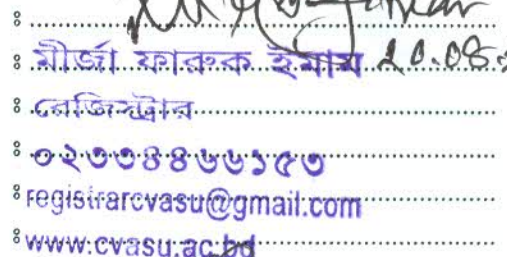 ঃ
ঃ মীর্জা ফারুক ইমাম ২০.০৪.
ঃ রেজিস্ট্রার
ঃ ০২৩৩৪৪৬৬১৫৩
ঃ registrarcvasu@gmail.com
ঃ www.cvasu.ac.bd